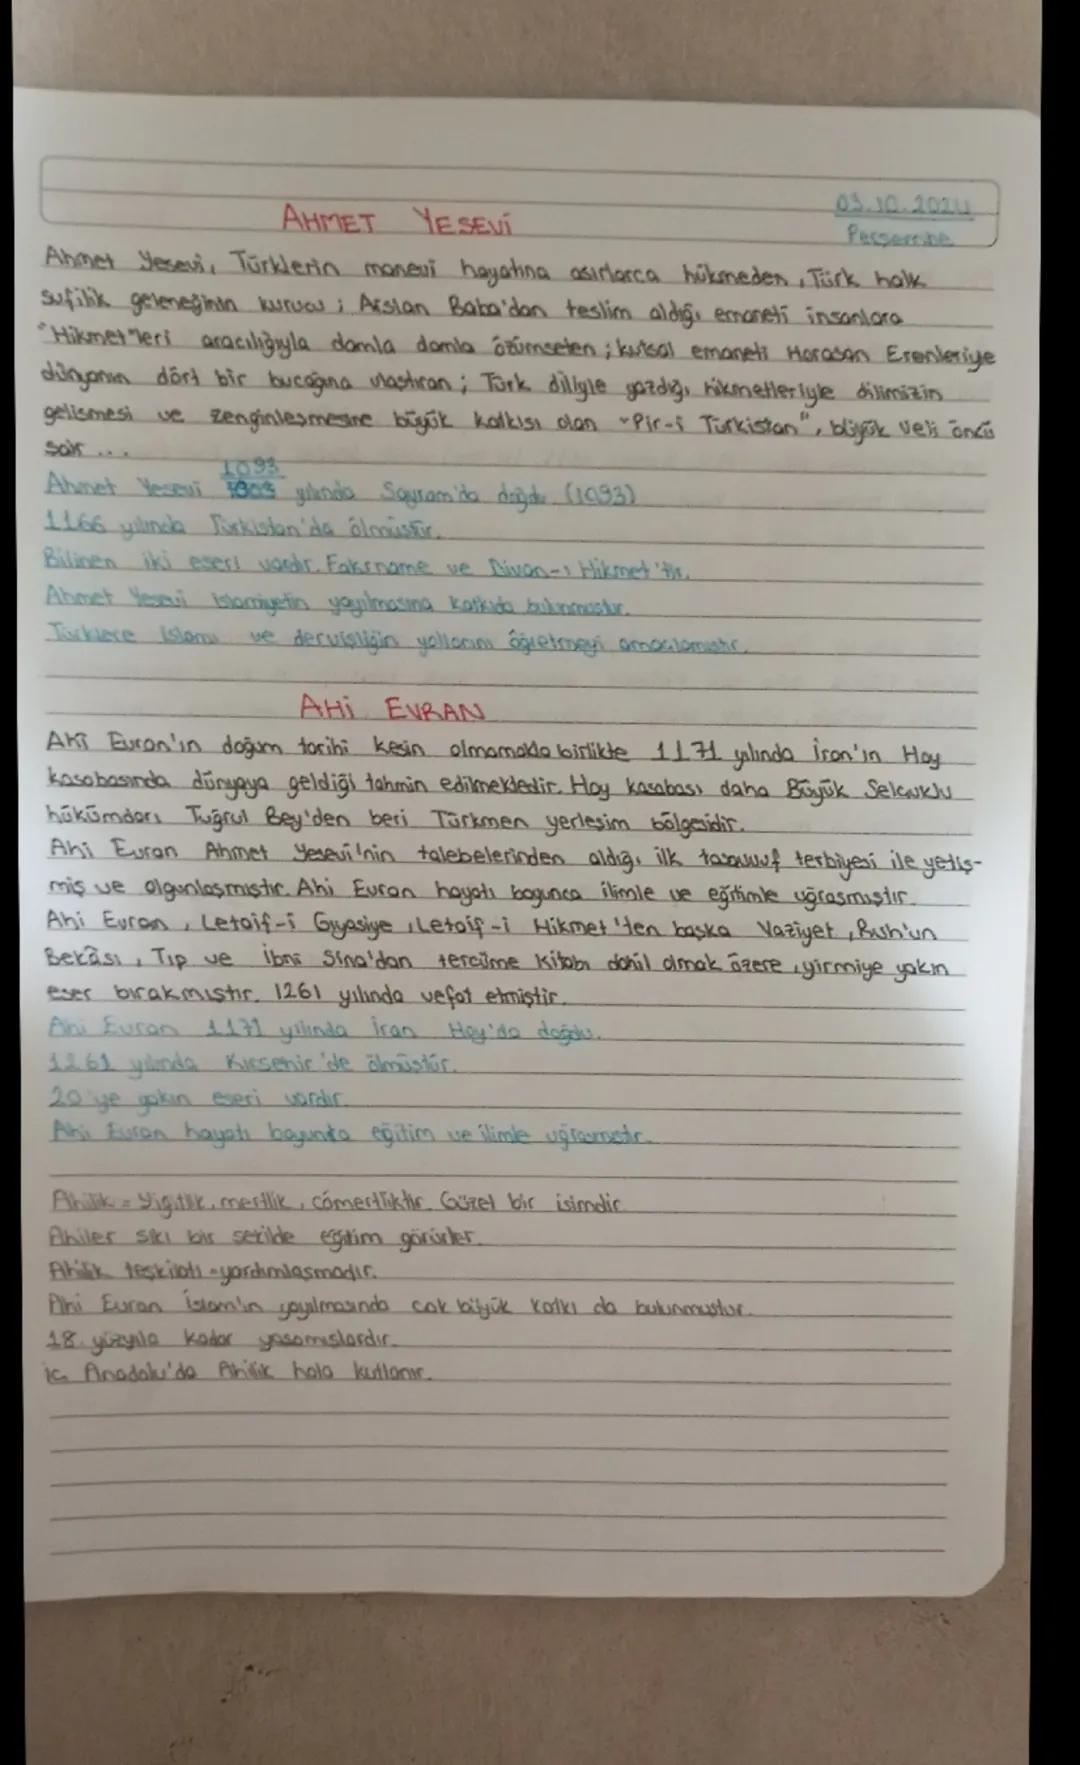 03.10.2024
AHMET YESEVİ
Perşembe
Ahmet Yesevi, Türklerin manevi hayatına asırlarca hükmeden, Türk halk
sufilik geleneğinin kurucu; Arslan Baba'dan teslim aldığı emaneti insanlara
"Hikmet"leri aracılığıyla damla damla özümseten; kutsal emaneti Horasan Erenleriye
dünyanın dört bir bucağına ulaştıran; Türk diliyle yazdığı hikmetleriyle dilimizin
gelişmesi ve zenginleşmesine büyük katkısı olan "Pir-i Türkistan", büyük veli öncü
şair ...
1093
Ahmet Yesevi yılında Sayram'da doğdu (1093)
1166 yılında Türkistan'da ölmüştür.
Bilinen iki eseri vardır. Fakrname ve Divan-ı Hikmet'tir.
Ahmet Yesevi İslamiyetin yayılmasına katkıda bulunmuştur.
Türklere İslamı ve dervişliğin yollarını öğretmeyi amaçlamıştır.
AHİ EVRAN
Ahi Evran'ın doğum tarihi kesin olmamakla birlikte 1171 yılında İran'ın Hoy
kasabasında dünyaya geldiği tahmin edilmektedir. Hoy kasabası daha Büyük Selçuklu
hükümdarı Tuğrul Bey'den beri Türkmen yerleşim bölgesidir.
Ahi Evran Ahmet Yesevi'nin talebelerinden aldığı ilk tasavvuf terbiyesi ile yetiş-
miş ve olgunlaşmıştır. Ahi Evran hayatı boyunca ilimle ve eğitimle uğraşmıştır.
Ahi Evran, Letaif-i Gıyasiye, Letaif-i Hikmet'ten başka Vaziyet, Ruh'un
Bekâsı, Tıp ve İbni Sina'dan tercüme kitabı dahil olmak üzere, yirmiye yakın
eser bırakmıştır. 1261 yılında vefat etmiştir.
Ahi Evran 1171 yılında İran Hoy'da doğdu.
1261 yılında Kırşehir'de ölmüştür.
20'ye yakın eseri vardır.
Ahi Evran hayatı boyunca eğitim ve ilimle uğraşmıştır.
Ahilik = Yiğitlik, mertlik, cömertliktir. Güzel bir isimdir
Ahiler sıkı bir şekilde eğitim görürler.
Ahilik teşkilatı = yardımlaşmadır.
Ahi Evran İslam'ın yayılmasında çok büyük katkı da bulunmuştur.
18. yüzyıla kadar yaşamışlardır.
İç Anadolu'da Ahilik hala kutlanır.